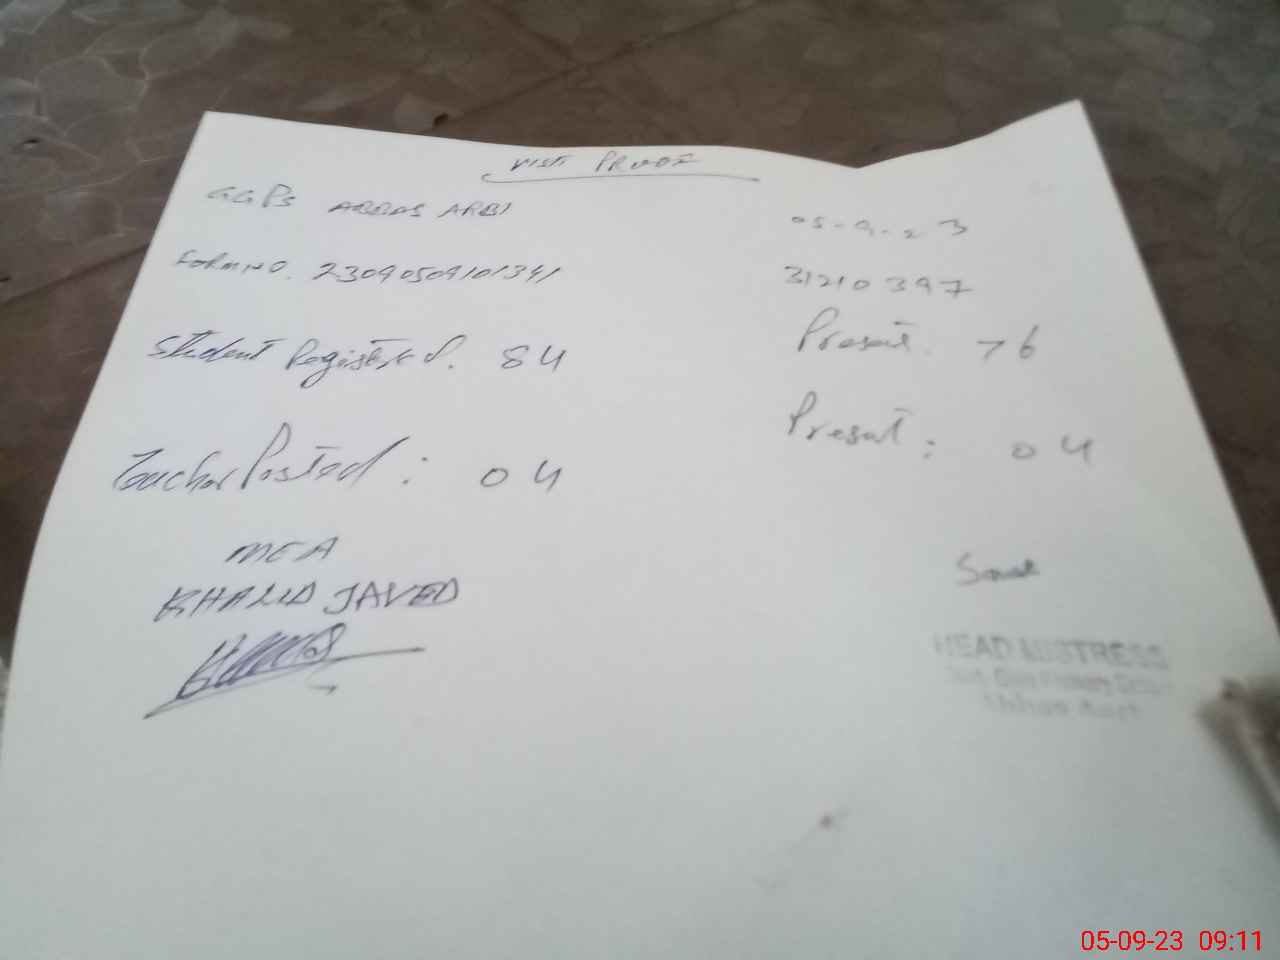 VISIT PROOF
GGPS ABBAS ARBI 05-9-23
FORM NO. 23090509101341 31210397
Student Registered. 84 Present. 76
Teacher Posted : 04 Present : 04
MEA
KHALID JAVED
HEAD MISTRESS
05-09-23 09:11